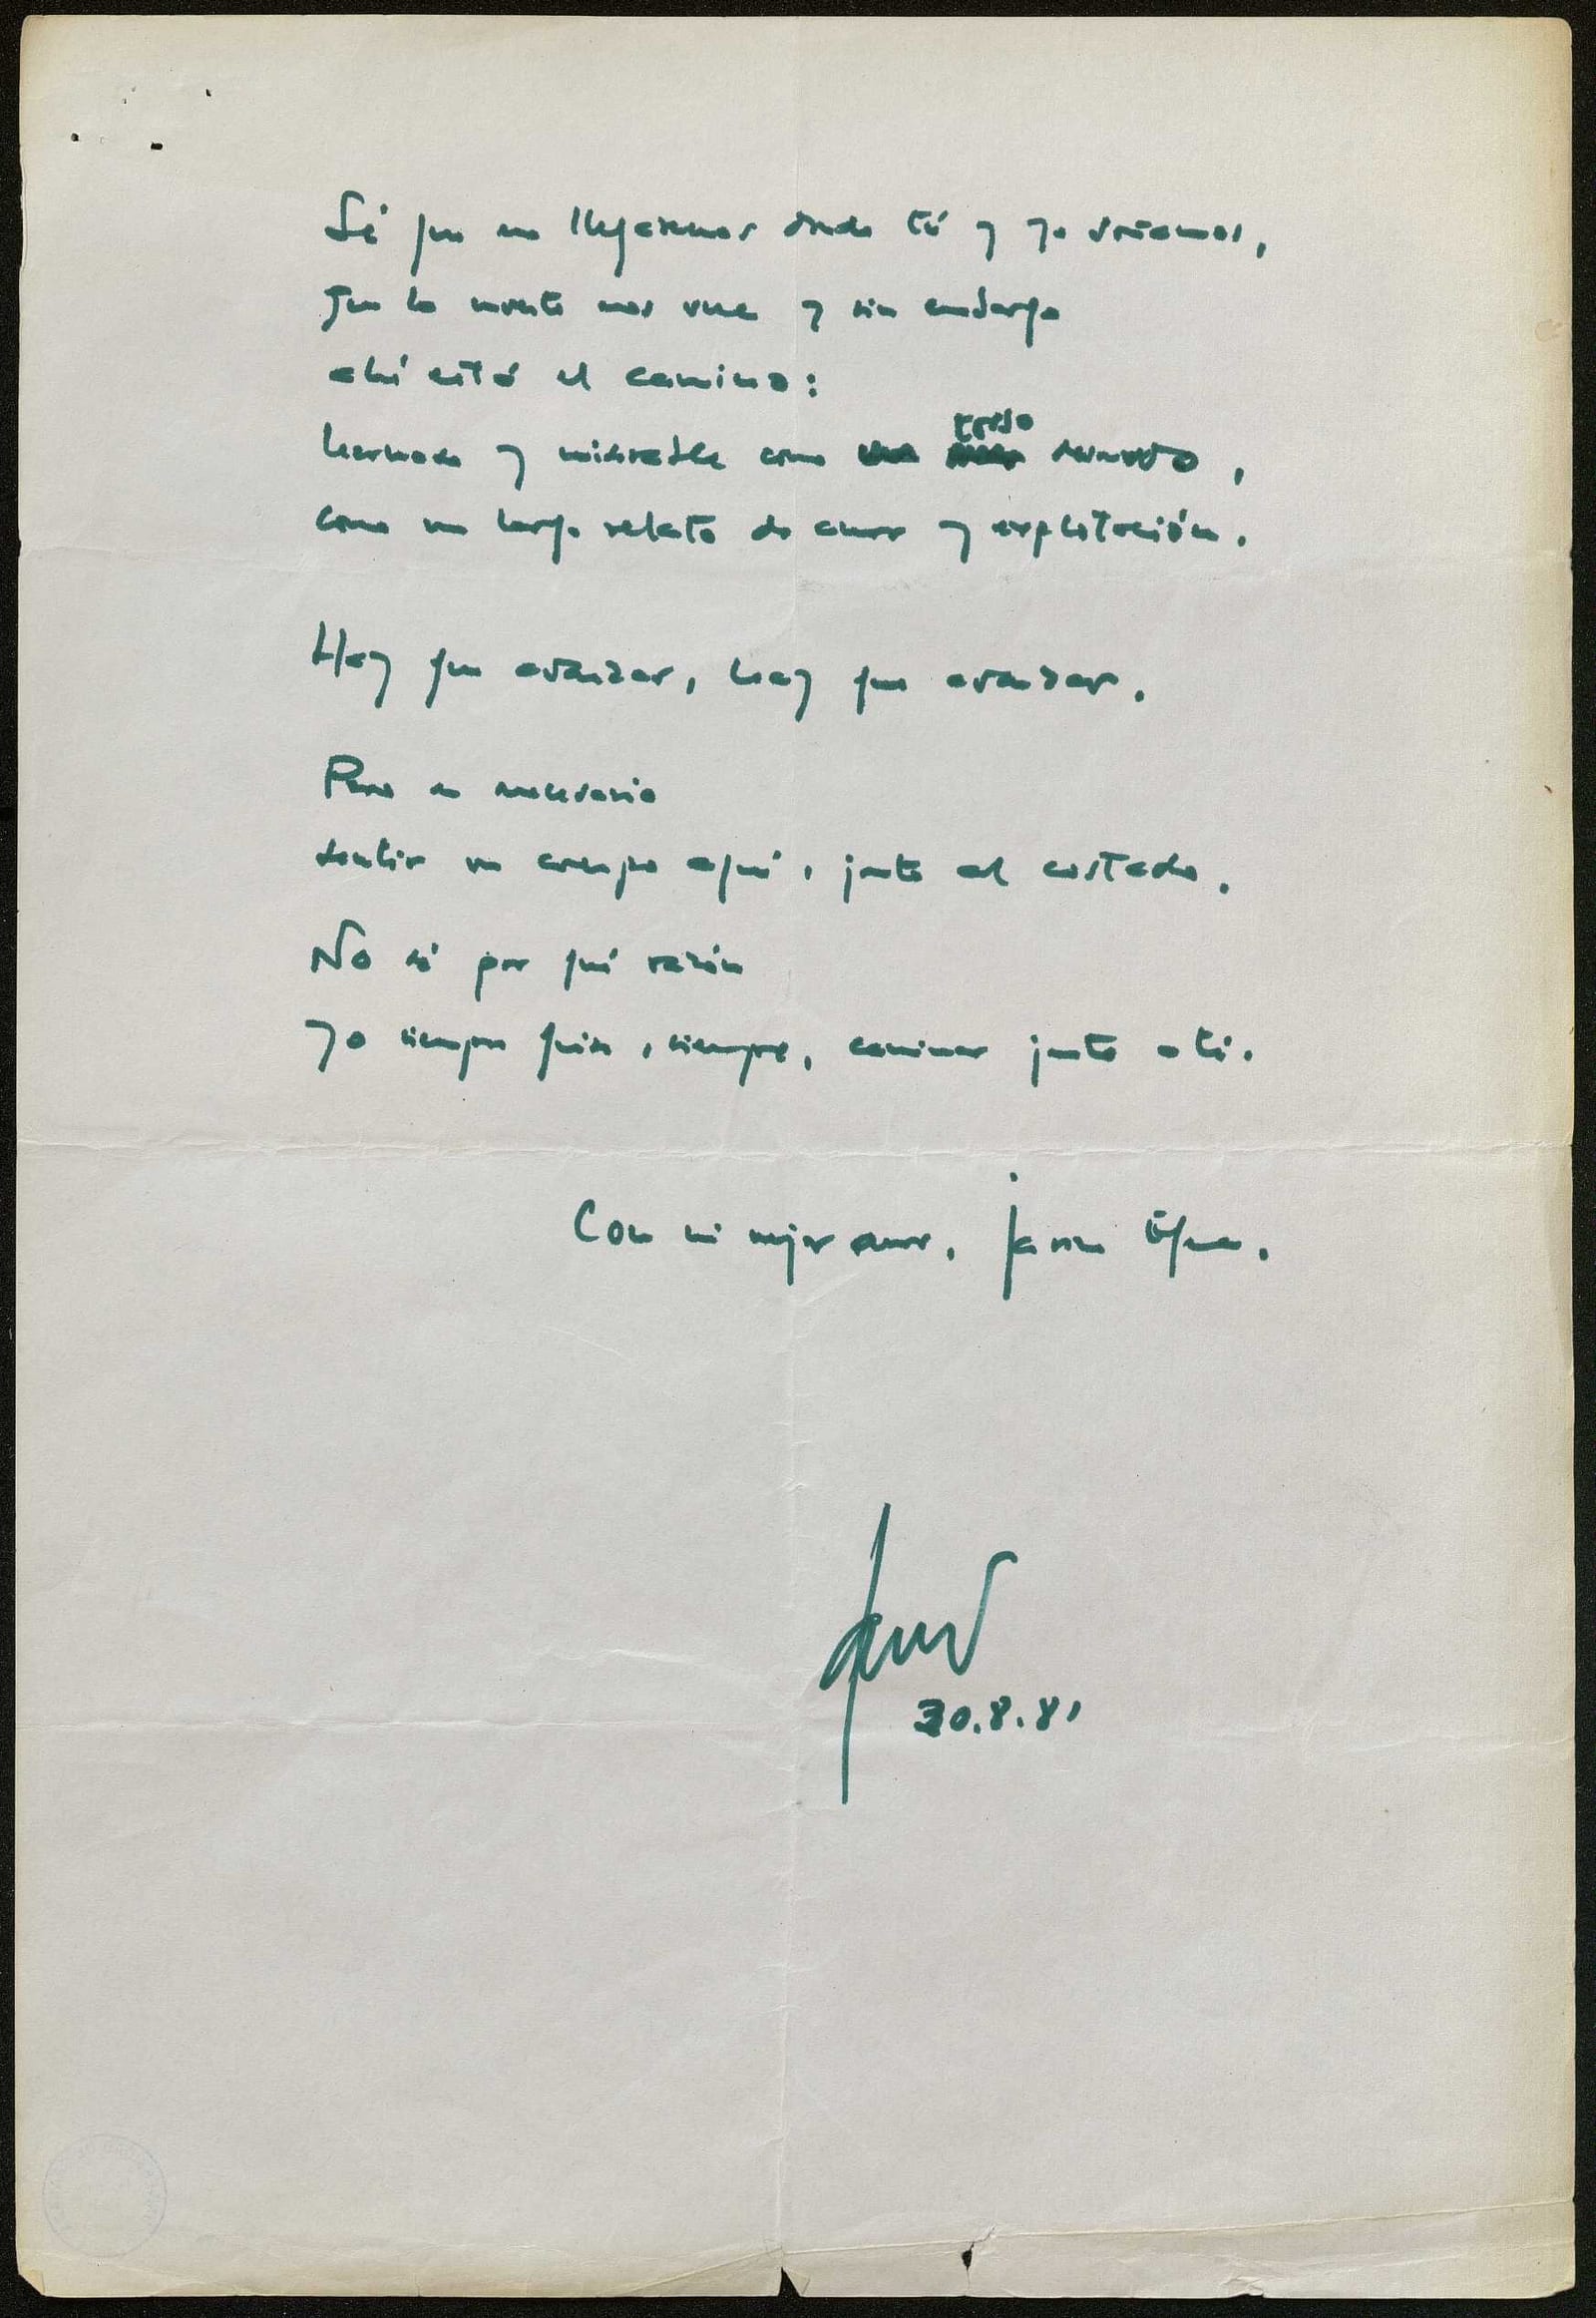 Sé que no llegaremos donde tú y yo soñamos,
que la muerte nos vence y sin embargo
ahí está el camino:
hermoso y miserable como torso desnudo,
como un largo relato de amor y explotación.
Hay que avanzar, hay que avanzar.
Pero es necesario
sentir un cuerpo aquí, junto al costado.
No sé por qué razón
yo siempre quise, siempre, caminar junto a ti.
Con mi mejor amor,
30.8.81